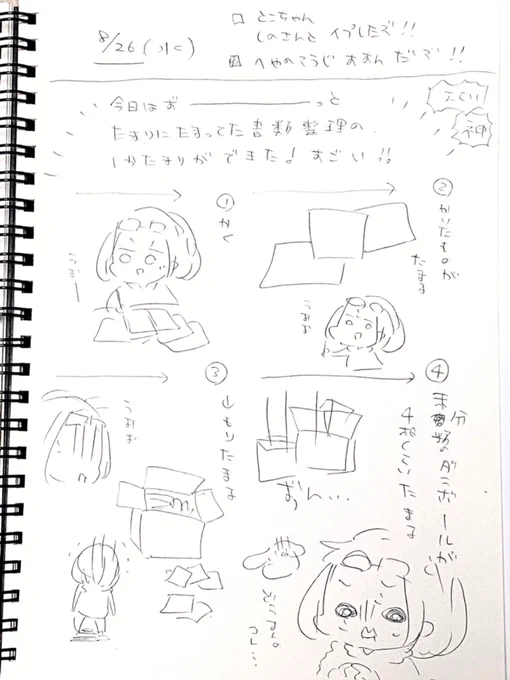 8/26(水)
□ とこちゃん
しのさんと イプしたズ!!
☑ へやのそうじ おおん だズ!!
えらい
神
今日はず――――っと
たまりにたまってた書類整理の
1かたまりができた! すごい!!
① かく
うおー
② かいたものが
たまる
うおお
③ 山もりたまる
うおお
④ 未分類のダンボールが
4箱くらいたまる
ずん...
どうするの
コレ...